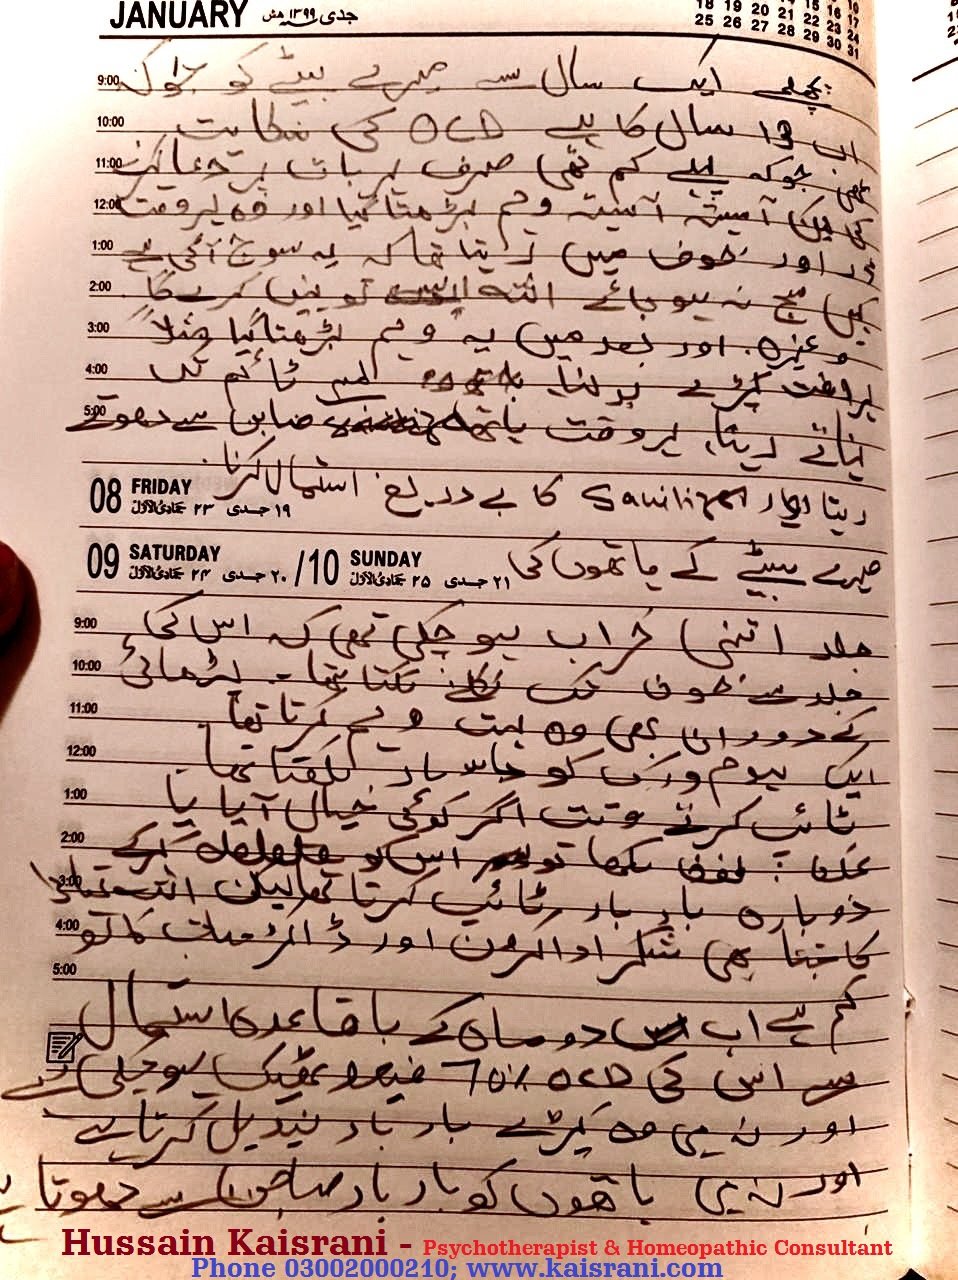 JANUARY جدی ۱۳۹۹ هش
18 19 20 21 22 23 24
25 26 27 28 29 30 31
9:00 پچھلے ایک سال سے میرے بیٹے کو جو کہ
10:00 اب 13 سال کا ہے OCD کی شکایت
11:00 تھی جو کہ پہلے کم تھی صرف ہر بات پر دعا کرنا
12:00 لیکن آہستہ آہستہ وہم بڑھتا گیا اور وہ ہر وقت
1:00 ڈر اور خوف میں رہتا تھا کہ یہ سوچ آئی ہے
2:00 کہیں سچ نہ ہو جائے اللہ ایسے تو نہیں کرے گا
3:00 وغیرہ۔ اور بعد میں یہ وہم بڑھتا گیا مثلاً
4:00 ہر وقت کپڑے بدلنا لمبے ٹائم تک
5:00 نہاتے رہنا، ہر وقت ہاتھ صابن سے دھوتے
رہنا اور Sanitizer کا بے دریغ استعمال کرنا۔
08 FRIDAY
۱۹ جدی ۲۳ جمادی‌الاول
میرے بیٹے کے ہاتھوں کی
09 SATURDAY /10 SUNDAY
۲۰ جدی ۲۴ جمادی‌الاول ۲۱ جدی ۲۵ جمادی‌الاول
9:00 جلد اتنی خراب ہو چکی تھی کہ اس کی
10:00 جلد سے خون تک نکلتا تھا۔ پڑھائی
11:00 کے دوران بھی وہ بہت وہم کرتا تھا
12:00 ایک ہوم ورک کو بار لکھتا تھا۔
1:00 ٹائپ کرتے وقت اگر کوئی خیال آیا یا
2:00 غلط لفظ لکھا تو اس کو delete کرکے
3:00 دوبارہ بار بار ٹائپ کرتا تھا لیکن اللہ تعالیٰ
4:00 کا جتنا بھی شکر ادا کروں اور ڈاکٹر صاحب کا تو
5:00
کم ہے اب دو ماہ کے باقاعدہ استعمال
سے اس کی OCD 70% ٹھیک ہو چکی ہے
اور نہ ہی وہ کپڑے بار بار تبدیل کرتا ہے
اور نہ ہی ہاتھوں کو بار بار صابن سے دھوتا ہے
Hussain Kaisrani - Psychotherapist & Homeopathic Consultant
Phone 03002000210; www.kaisrani.com